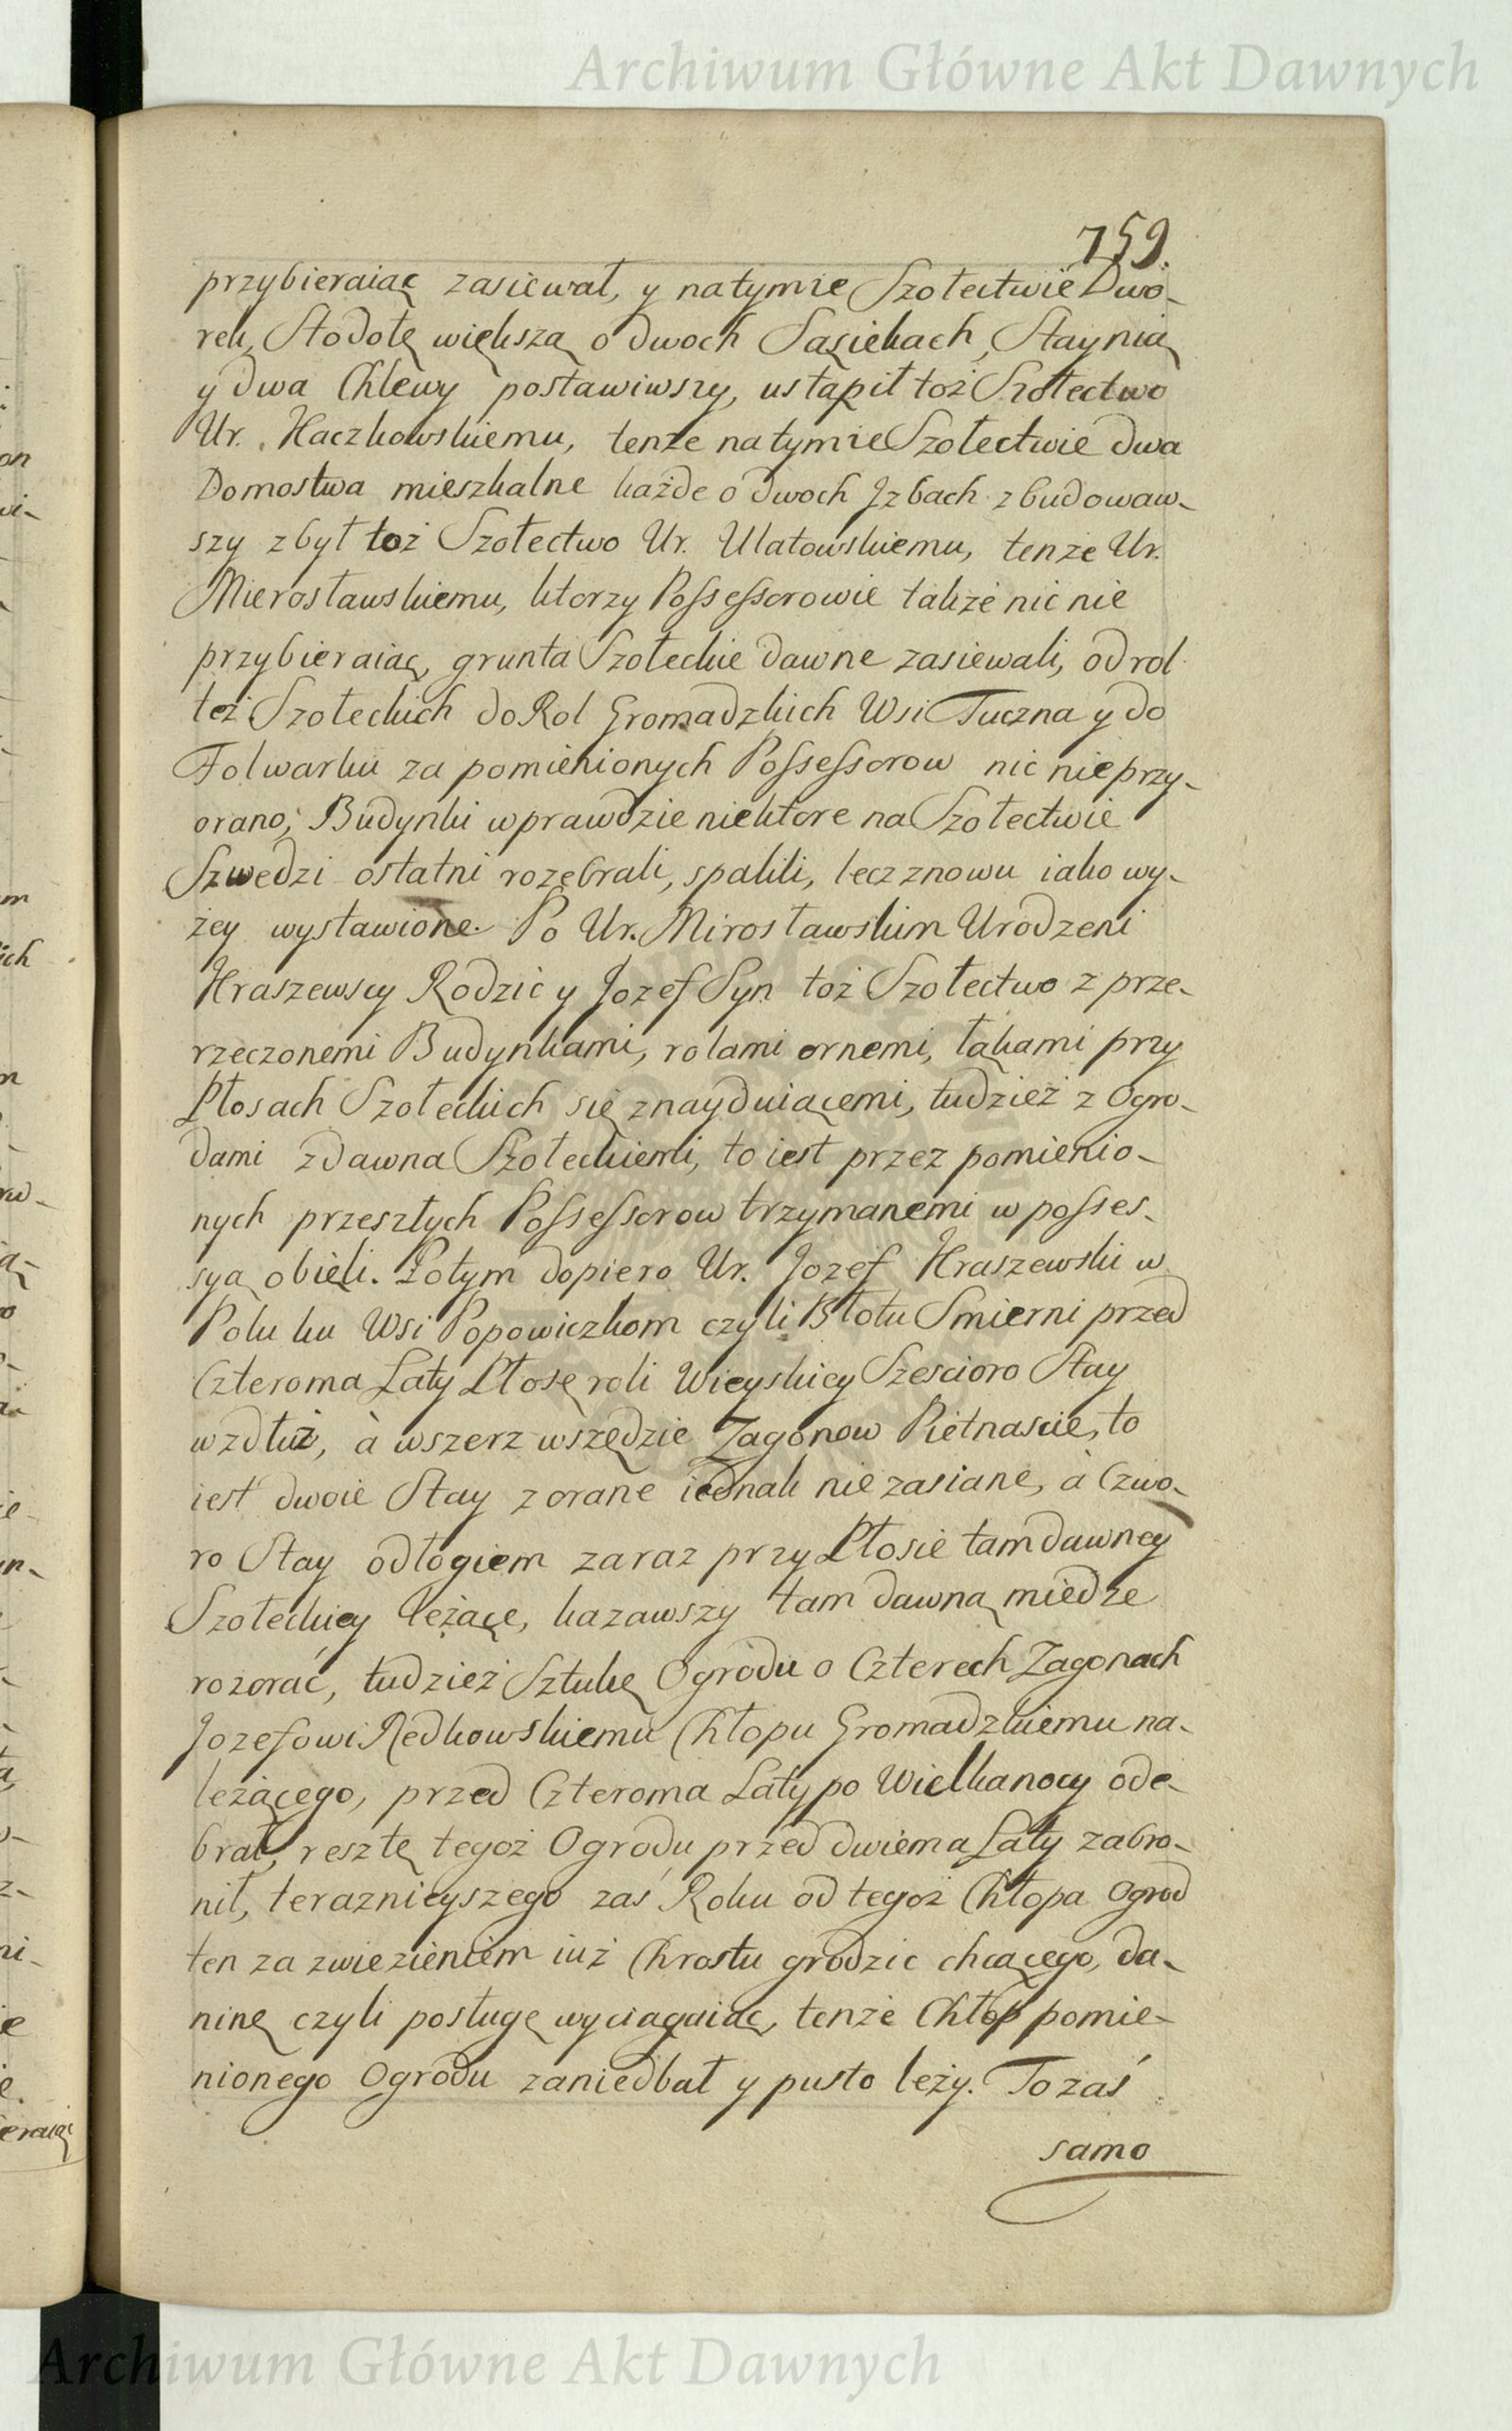 Archiwum Główne Akt Dawnych
759.
przybieraiąc zasiewał, y na tymże Szołectwie Dwo-
rek, Stodołę większą o dwoch Sąsiekach, Staynią
y dwa Chlewy postawiwszy, ustąpił toż Szołectwo
Ur. Kaczkowskiemu, tenże na tymże Szołectwie dwa
Domostwa mieszkalne każde o dwoch Izbach zbudowaw-
szy zbył toż Szołectwo Ur. Ulatowskiemu, tenże Ur.
Mierosławskiemu, ktorzy Possessorowie także nic nie
przybieraiąc, grunta Szołeckie dawne zasiewali, od rol
też Szołeckich do Rol Gromadzkich Wsi Tuczna y do
Folwarku za pomienionych Possessorow nic nie przy-
orano; Budynki wprawdzie niektore na Szołectwie
Szwedzi ostatni rozebrali, spalili, lecz znowu iako wy-
żey wystawione. Po Ur. Mirosławskim Urodzeni
Kraszewscy Rodzic y Jozef Syn toż Szołectwo z prze-
rzeczonemi Budynkami, rolami ornemi, łąkami przy
Płosach Szołeckich się znayduiącemi, tudzież z Ogro-
dami zdawna Szołeckiemi, to iest przez pomienio-
nych przeszłych Possessorow trzymanemi w posses-
syą obięli. Potym dopiero Ur. Jozef Kraszewski w
Polu ku Wsi Popowiczkom czyli Błotu Smierni przed
Czteroma Laty Płosę roli Wieyskiey Szescioro Stay
wzdłuż, à wszerz wszędzie Zagonow Piętnascie, to
iest dwoie Stay zorane iednak nie zasiane, à Czwo-
ro Stay odłogiem zaraz przy Płosie tam dawney
Szołeckiey leżące, kazawszy tam dawną miedze
rozorać, tudzież Sztukę Ogrodu o Czterech Zagonach
Jozefowi Redkowskiemu Chłopu Gromadzkiemu na-
leżącego, przed Czteroma Laty po Wielkanocy ode-
brał, resztę tegoż Ogrodu przed dwiema Laty zabro-
nił, teraznieyszego zaś Roku od tegoż Chłopa Ogrod
ten za zwiezieniem iuż Chrostu grodzic chcącego, da-
ninę czyli posługę wyciągaiąc, tenże Chłop pomie-
nionego Ogrodu zaniedbał y pusto leży. To zaś
samo
Archiwum Główne Akt Dawnych